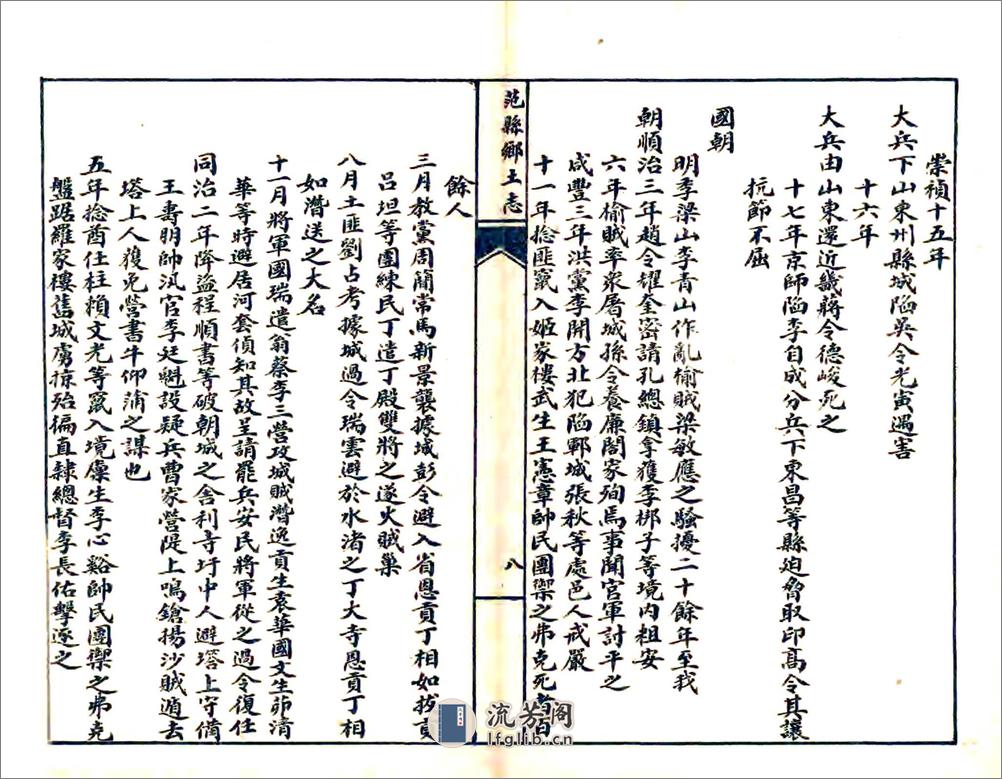 崇禎十五年
大兵下山東州縣城陷吳令光寅遇害
十六年
大兵由山東還近畿蔣令德峻死之
十七年京師陷李自成分兵下東昌等縣迫脅取印高令其讓
抗節不屈
國朝
明季梁山李青山作亂榆賊梁敏應之騷擾二十餘年至我
朝順治三年趙令耀全密請孔總鎮拿獲李梆子等境內粗安
六年榆賊率衆屠城孫令養廉閤家殉焉事聞官軍討平之
咸豐三年洪黨李開方北犯陷鄆城張秋等處邑人戒嚴
十一年捻匪竄入姬家樓武生王憲章帥民團禦之弗克死者百
范縣鄉土志
八
餘人
三月教黨周簡常馬新景襲據城彭令避入省恩貢丁相如拔貢
呂坦等團練民丁遣丁殿雙將之遂火賊巢
八月土匪劉占考據城過令瑞雲避於水渚之丁大寺恩貢丁相
如潛送之大名
十一月將軍國瑞遣翁蔡李三營攻城賊潛逸貢生袁華國文生茆清
華等時避居河套偵知其故呈請罷兵安民將軍從之過令復任
同治二年降盜程順書等破朝城之舍利寺圩中人避塔上守備
王壽朋帥汛官李廷魁設疑兵曹家營隄上鳴鎗揚沙賊遁去
塔上人獲免營書牛仰蒲之謀也
五年捻酋任柱賴文光等竄入境廩生李心谿帥民團禦之弗克
盤踞羅家樓舊城虜掠殆徧直隸總督李長佑擊逐之
流芳阁
lfglib.cn